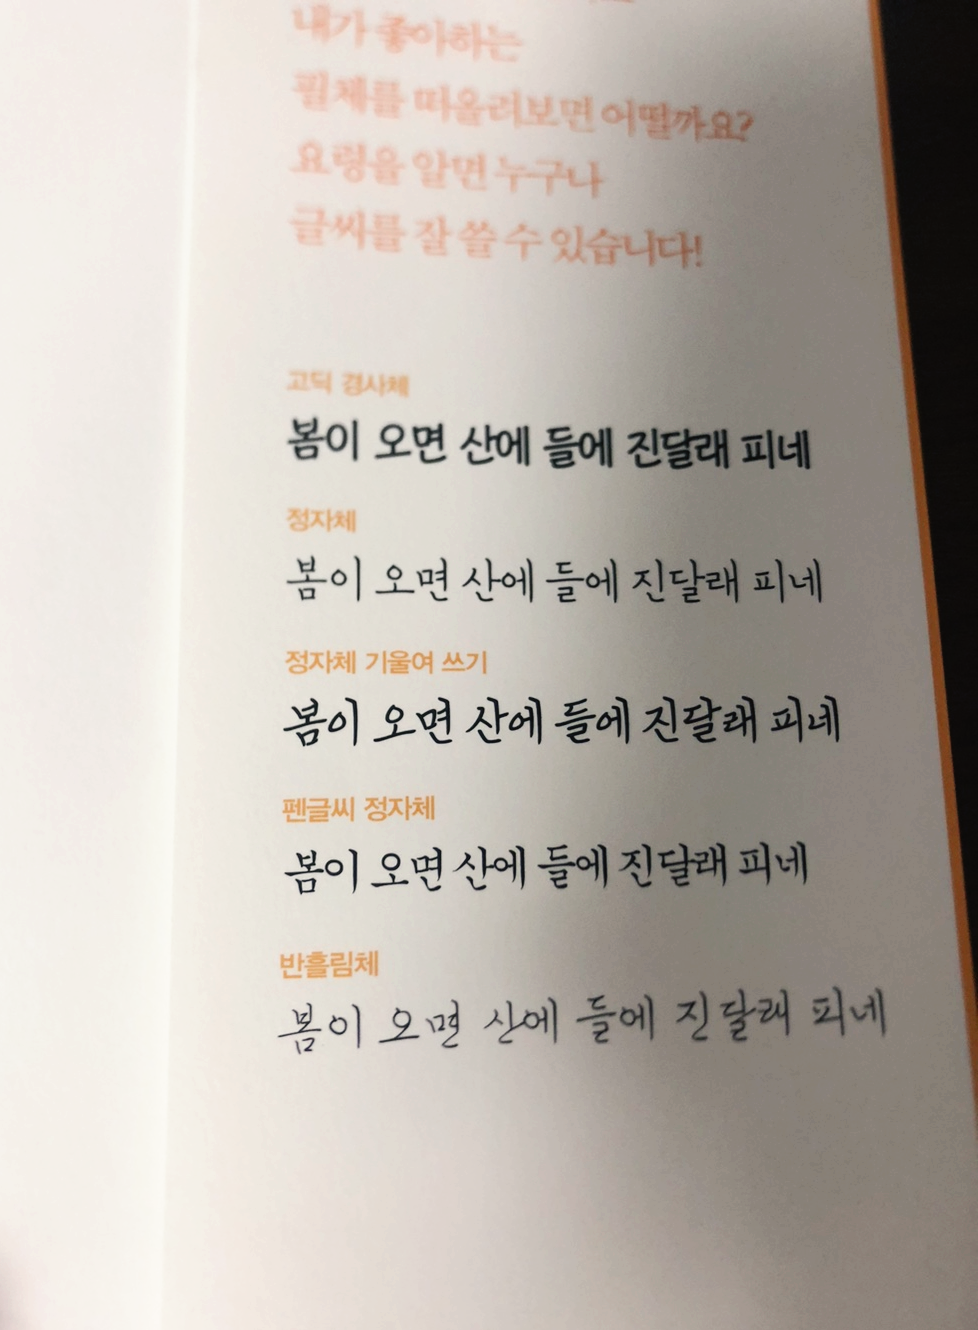 내가 좋아하는
필체를 떠올려보면 어떨까요?
요령을 알면 누구나
글씨를 잘 쓸 수 있습니다!
고딕 경사체
봄이 오면 산에 들에 진달래 피네
정자체
봄이 오면 산에 들에 진달래 피네
정자체 기울여 쓰기
봄이 오면 산에 들에 진달래 피네
펜글씨 정자체
봄이 오면 산에 들에 진달래 피네
반흘림체
봄이 오면 산에 들에 진달래 피네